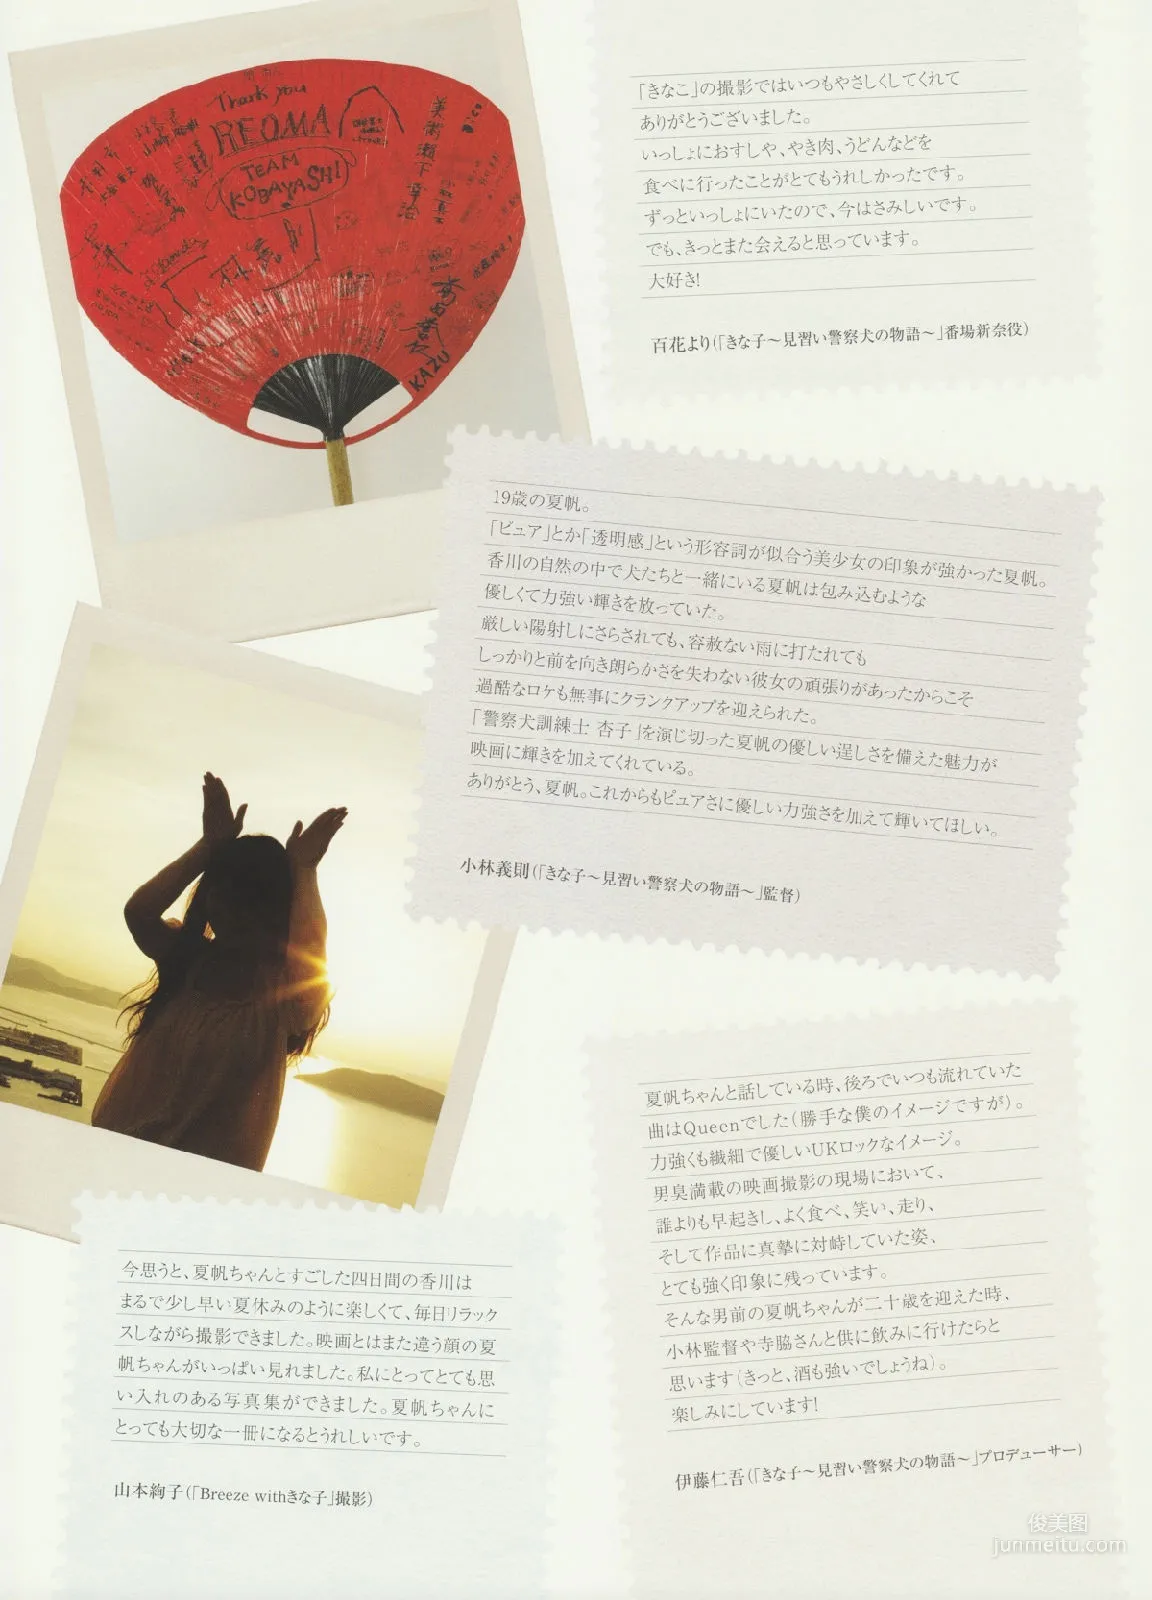 Thank you
REOMA
TEAM
KOBAYASHI
美術 瀬下幸治
KAZU
「きなこ」の撮影ではいつもやさしくしてくれて
ありがとうございました。
いっしょにおすしや、やき肉、うどんなどを
食べに行ったことがとてもうれしかったです。
ずっといっしょにいたので、今はさみしいです。
でも、きっとまた会えると思っています。
大好き!
百花より(「きな子〜見習い警察犬の物語〜」番場新奈役)
19歳の夏帆。
「ピュア」とか「透明感」という形容詞が似合う美少女の印象が強かった夏帆。
香川の自然の中で犬たちと一緒にいる夏帆は包み込むような
優しくて力強い輝きを放っていた。
厳しい陽射しにさらされても、容赦ない雨に打たれても
しっかりと前を向き朗らかさを失わない彼女の頑張りがあったからこそ
過酷なロケも無事にクランクアップを迎えられた。
「警察犬訓練士 杏子」を演じ切った夏帆の優しい逞しさを備えた魅力が
映画に輝きを加えてくれている。
ありがとう、夏帆。これからもピュアさに優しい力強さを加えて輝いてほしい。
小林義則(「きな子〜見習い警察犬の物語〜」監督)
夏帆ちゃんと話している時、後ろでいつも流れていた
曲はQueenでした(勝手な僕のイメージですが)。
力強くも繊細で優しいUKロックなイメージ。
男臭満載の映画撮影の現場において、
誰よりも早起きし、よく食べ、笑い、走り、
そして作品に真摯に対峙していた姿、
とても強く印象に残っています。
そんな男前の夏帆ちゃんが二十歳を迎えた時、
小林監督や寺脇さんと供に飲みに行けたらと
思います(きっと、酒も強いでしょうね)。
楽しみにしています!
伊藤仁吾(「きな子〜見習い警察犬の物語〜」プロデューサー)
今思うと、夏帆ちゃんとすごした四日間の香川は
まるで少し早い夏休みのように楽しくて、毎日リラック
スしながら撮影できました。映画とはまた違う顔の夏
帆ちゃんがいっぱい見れました。私にとってとても思
い入れのある写真集ができました。夏帆ちゃんに
とっても大切な一冊になるとうれしいです。
山本絢子(「Breeze withきな子」撮影)
俊美图
junmeitu.com